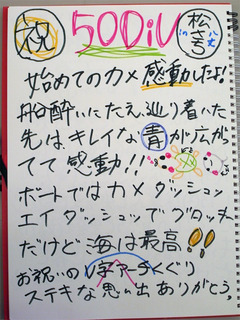 祝 50DiV 松さん in 八丈
始めてのカメ感動したよ!
船酔いにたえ巡り着いた
先はキレイな青が広がっ
てて感動!!
ボートではカメダッシュッ
エイダッシュッでグロッキー
だけど海は最高!!
お祝いのU字アーチくぐり
ステキな思い出ありがとう。